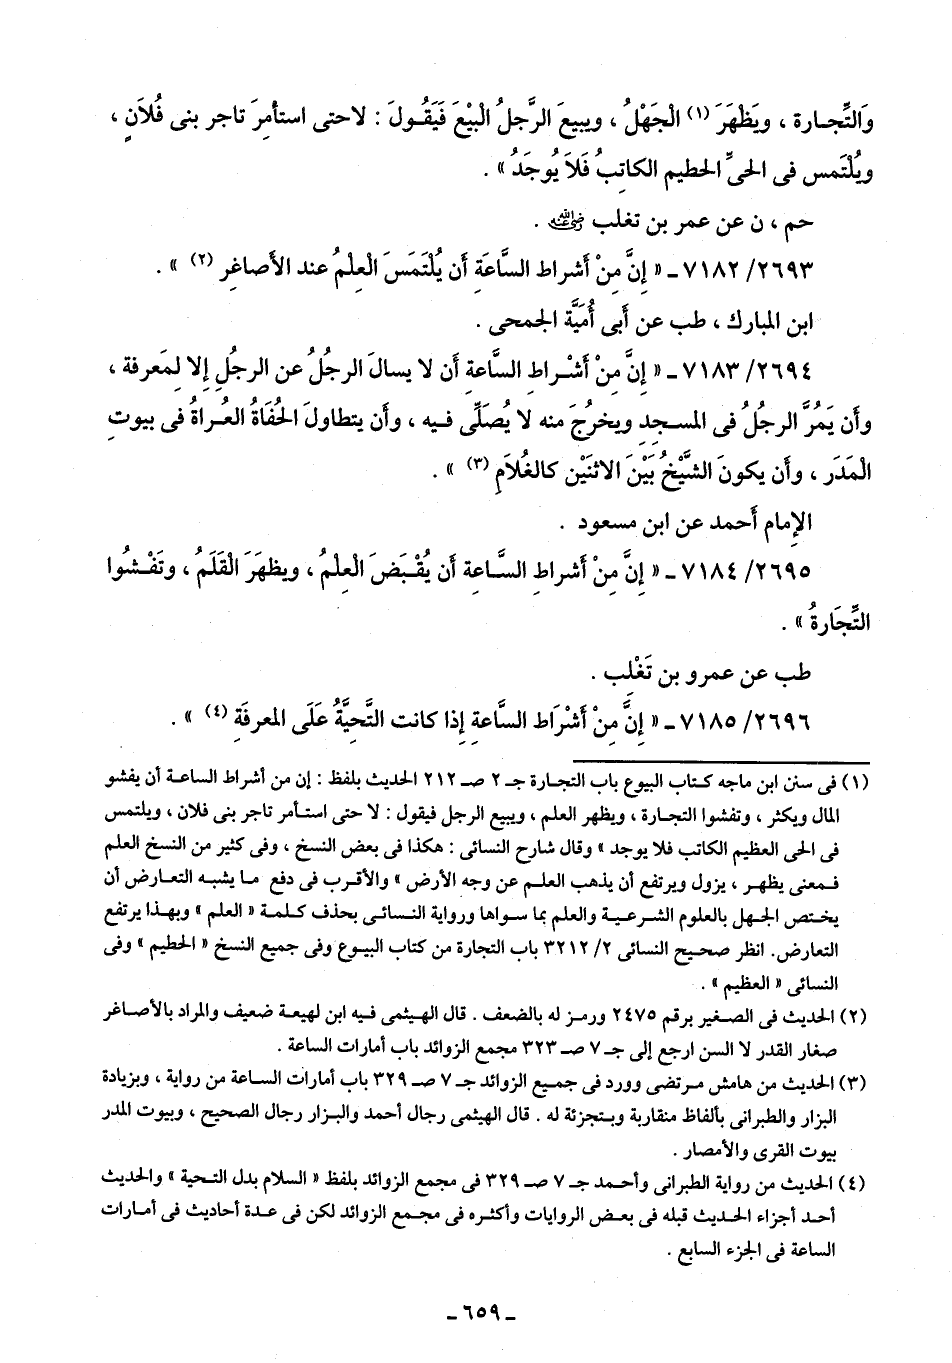 وَالتِّجـارة ، ويَظْهَرَ (١) الْجَهْلُ ، ويبيعَ الرَّجلُ الْبَيْعَ فَيَقُـولَ : لاحتى استأمِرَ تاجر بنى فُلاَنٍ ،
ويُلْتَمس فى الحىِّ الحطيم الكاتِبُ فَلاَ يُوجَدُ » .
حم ، ن عن عمر بن تغلب رضي الله عنه .
٢٦٩٣/ ٧١٨٢ـ « إِنَّ مِنْ أشراط السَّاعَةِ أن يُلْتَمَسَ العِلمُ عند الأصاغِر (٢) » .
ابن المبارك ، طب عن أبى أُمَيَّة الجمحى .
٢٦٩٤/ ٧١٨٣ـ « إِنَّ مِنْ أشْـراط السَّاعة أن لا يسالَ الرجلُ عن الرجلِ إِلا لِمَعرفة ،
وأن يَمُرَّ الرجلُ فى المسـجدِ ويخرجَ منه لا يُصَلِّى فيـه ، وأن يتطاولَ الحُفَاةُ العُراةُ فى بيوتِ
الْمَدَر ، وأن يكونَ الشَّيْخُ بَيْنَ الاثنَيْن كالغُلاَمِ (٣) » .
الإمام أحمد عن ابن مسعود .
٢٦٩٥/ ٧١٨٤ـ « إِنَّ مِنْ أشراطِ السـاعة أن يُقْـبَضَ العِلْمُ ، ويظهَرَ الْقَلَمُ ، وتَفْـشُوا
التِّجَارةُ » .
طب عن عمرو بن تَغْلِب .
٢٦٩٦/ ٧١٨٥ـ « إِنَّ مِنْ أشْرَاط السَّاعةِ إِذا كانت التَّحِيَّةُ عَلَى المعرفَةِ (٤) » .
(١) فى سنن ابن ماجه كـتاب البيوع باب التجارة جـ ٢ صـ ٢١٢ الحديث بلفظ : إن من أشراط الساعـة أن يفشو
المال ويكثر ، وتفشوا التجـارة ، ويظهر العلم ، ويبيع الرجل فيقول : لا حتى استـأمر تاجر بنى فلان ، ويلتمس
فى الحى العظيم الكاتب فلا يوجد » وقال شارح النسائى : هكذا فى بعض النسخ ، وفى كثير من النسخ العلم
فـمعنى يظهـر ، يزول ويرتفع أن يذهب العلـم عن وجه الأرض » والأقرب فى دفع ما يشبه التعـارض أن
يخـتص الجهـل بالعلوم الشـرعيـة والعلم بما سـواها ورواية النسـائى بحذف كـلمـة « العلم » وبهـذا يرتفع
التعارض. انظر صحـيح النسائى ٢/ ٣٢١٢ باب التجارة من كتاب البيـوع وفى جميع النسخ « الحطيم » وفى
النسائى « العظيم » .
(٢) الحديث فى الصـغير برقـم ٢٤٧٥ ورمـز له بالضعف . قال الهـيثمى فـيه ابن لهيـعة ضعيف والمراد بالأصاغر
صغار القدر لا السن ارجع إلى جـ ٧ صـ ٣٢٣ مجمع الزوائد باب أمارات الساعة .
(٣) الحديث من هامش مـرتضى وورد فى جمـيع الزوائد جـ ٧ صـ ٣٢٩ باب أمارات الساعة من رواية ، وبزيادة
البزار والطبرانى بألفاظ متقاربة وبتجزئة له . قال الهيثمى رجال أحمد والبـزار رجال الصحيح ، وبيوت المدر
بيوت القرى والأمصار .
(٤) الحديث من رواية الطبرانى وأحـمد جـ ٧ صـ ٣٢٩ فى مجمع الزوائد بلفظ « السلام بدل التحية » والحديث
أحـد أجزاء الحـديث قبله فى بعـض الروايات وأكـثره فى مجـمع الزوائد لكن فى عـدة أحاديث فى أمـارات
الساعة فى الجزء السابع .
ـ ٦٥٩ ـ